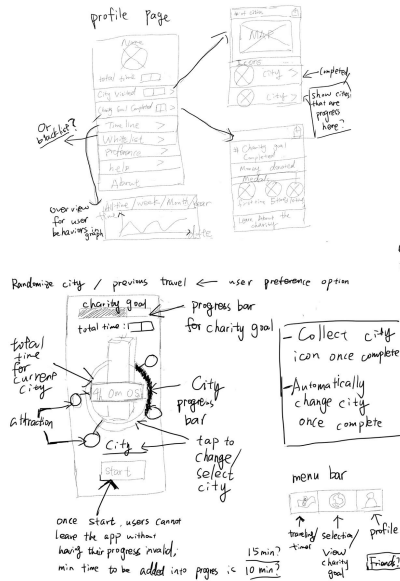 profile page
Name
total time
City visited >
Charity Goal Completed >
Time line >
White list >
preference >
help >
About
Or
blacklist?
overview
for user
behaviors graph
total time/week/Month/year
time
date
# of cities
MAP
Icons
City >
City >
completed
show cities
that are
progress
here?
# Charity goal
Completed
Money donated
Medal
Learn About the
charity
Randomize city / previous travel ← user preference option
charity goal
progress bar
for charity goal
total time:
total
time
for
current
city
9h 0m 0s
City
progress
bar
attraction
City
tap to
change/
select
city
Start
once start, users cannot
leave the app without
having their progress invalid,
min time to be added into progress is 10 min?
15 min?
- Collect city
icon once complete
- Automatically
change city
once complete
menu bar
traveling
timer
selection/
view
charity
goal
profile
Friends?